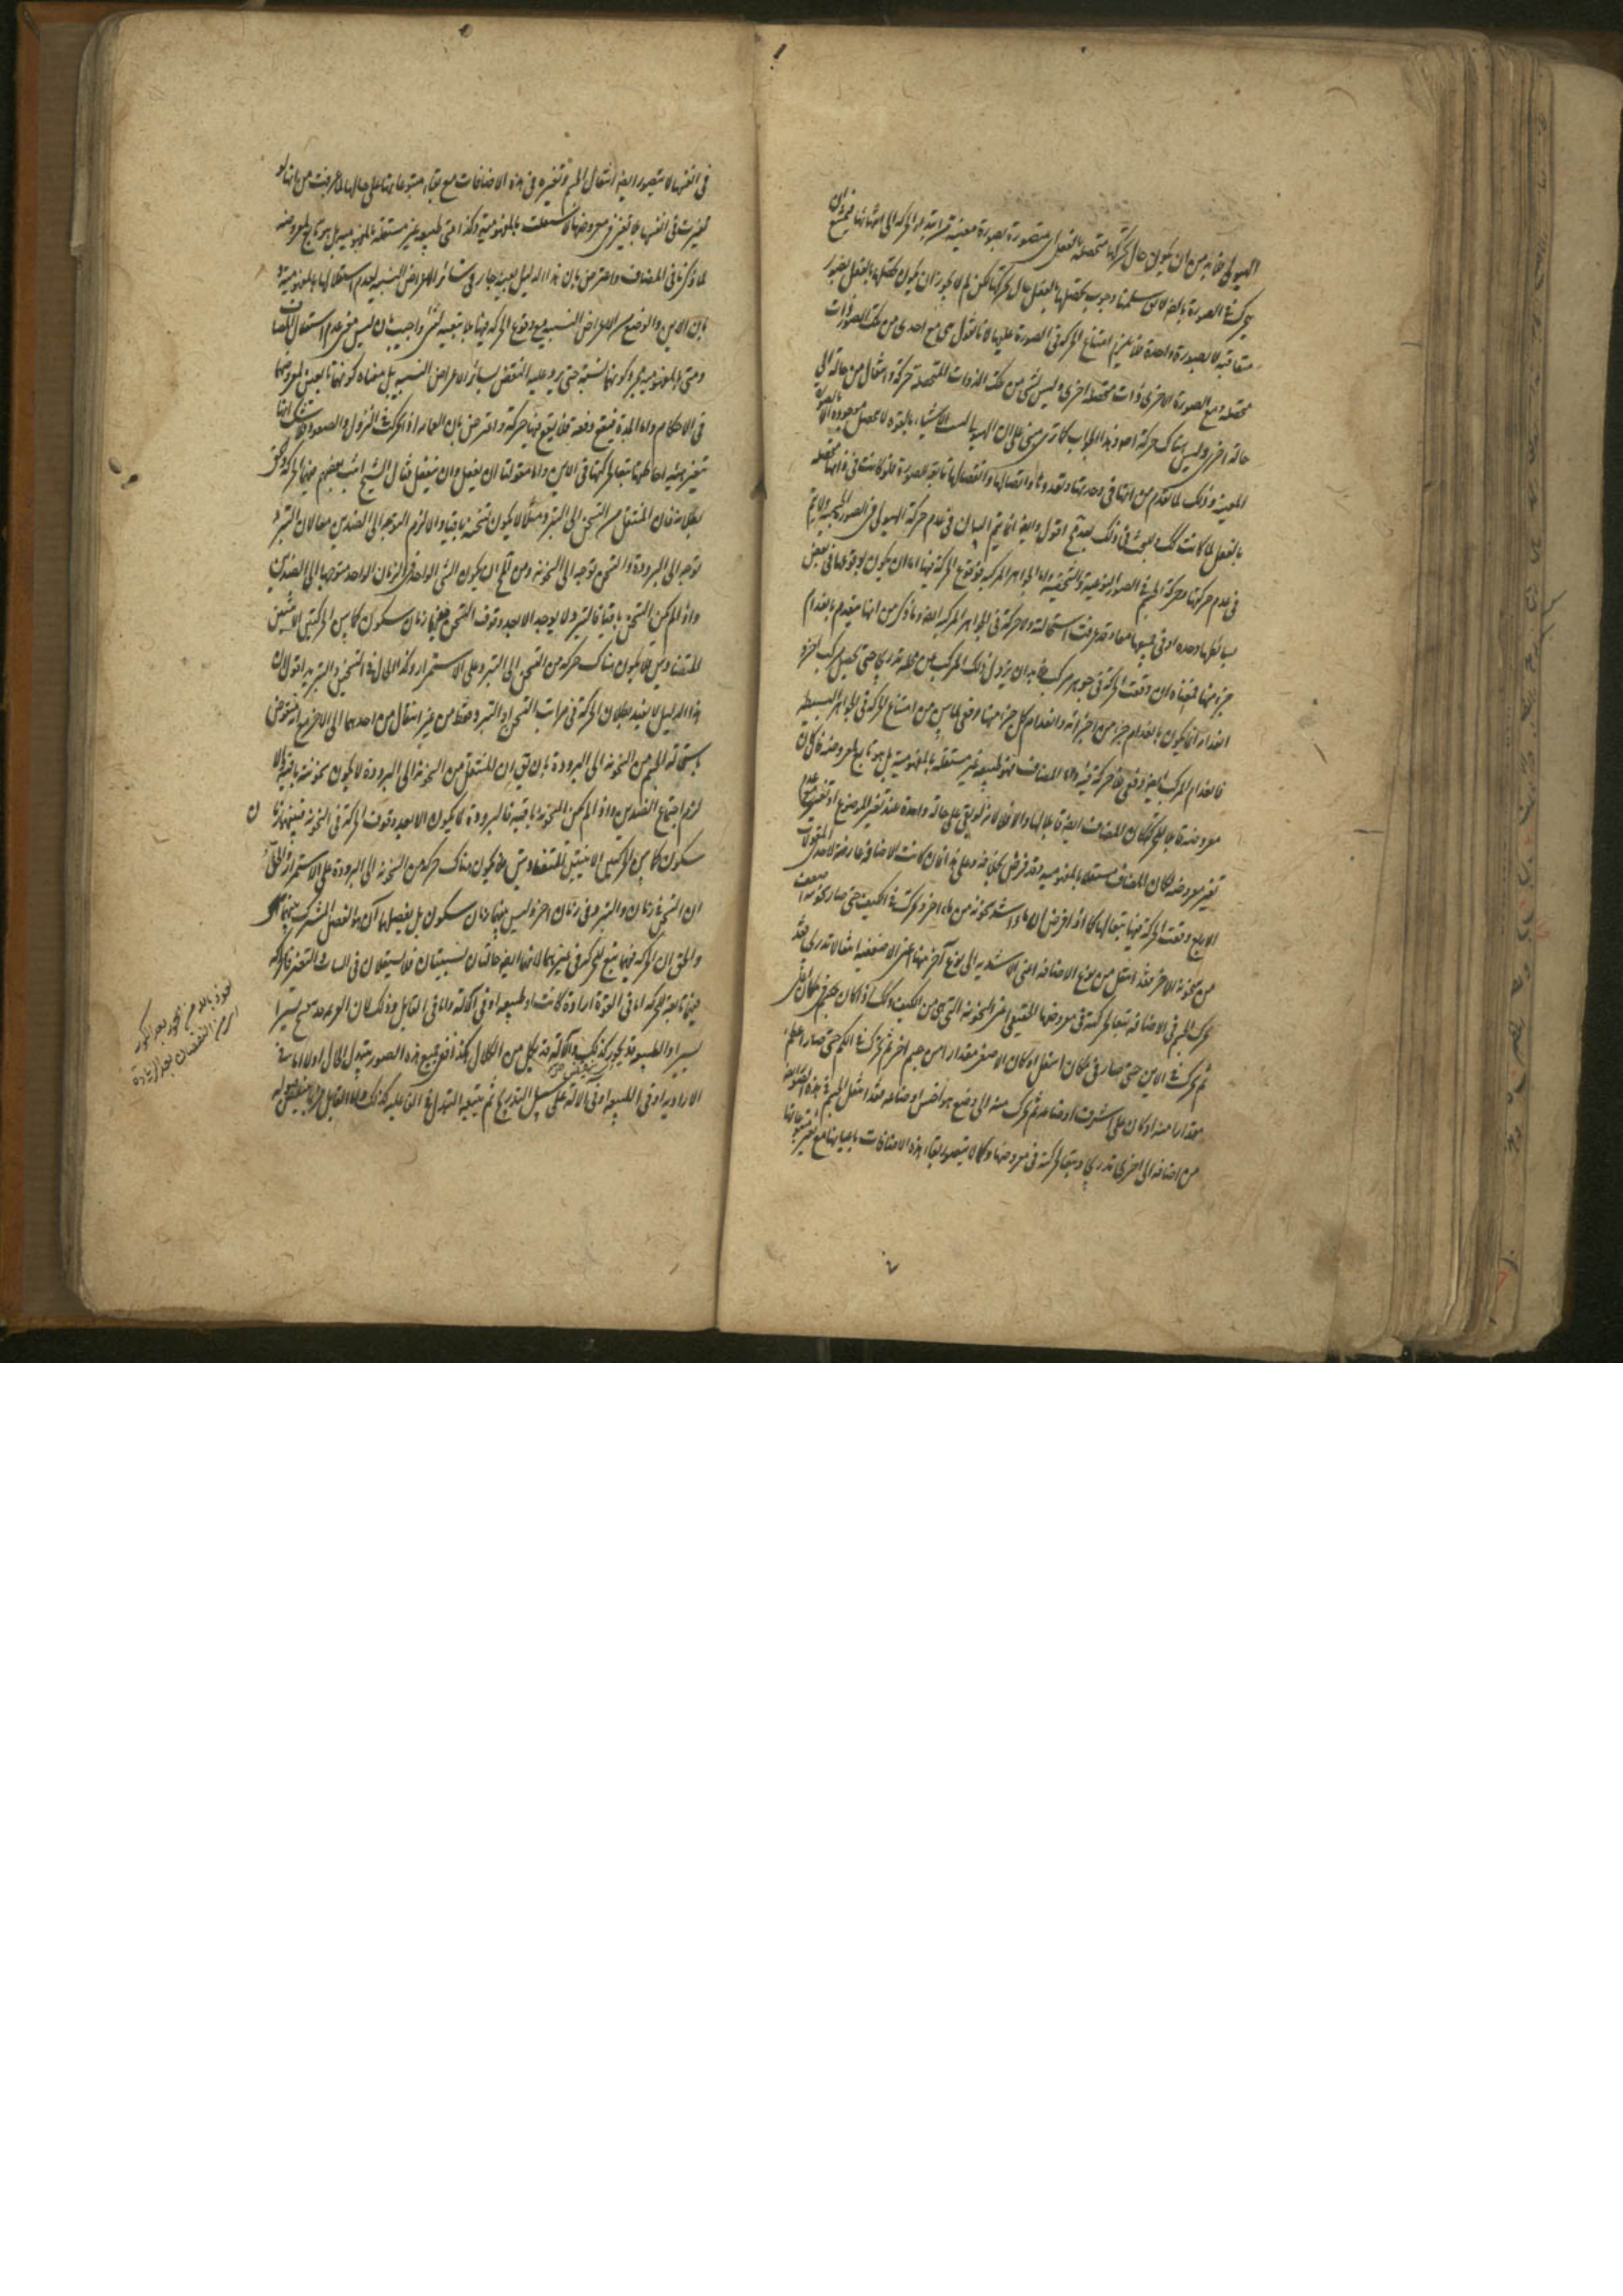 الهيولى فلا بد من ان يكون حال حركتها متحصلة بالفعل متصورة بصورة معينة من ابتداء الحركة الى انتهائها فيمتنع ان
يتحرك في الصورة بالضرورة لا يقال سلمنا وجوب تحصلها بالفعل حال حركتها لكن لم لا يجوز ان يكون تحصلها بالفعل بصور
متعاقبة لا بصورة واحدة فلا يلزم امتناع الحركة في الصورة عليها لانا نقول هي مع احدى من تلك الصور ذات
محصلة ومع الصورة الاخرى ذات محصلة اخرى وليس لشئ من تلك الذوات المتحصلة حركة وانتقال من حالة الى
حالة اخرى وليس هناك حركة اصلا وهذا الجواب كما ترى مبنى على ان الهيولى ليست الاشياء بالقوة لا تحصل موجودة الا بالصورة
المعينة وذلك لما تقدم من انها في وحدتها وتعددها واتصالها وانفصالها تابعة للصورة فلو كانت في ذاتها متحصلة
بالفعل لما كانت كذلك والبحث في ذلك بعد قائم اقول وايضا انما يتم البيان في عدم حركة الهيولى في الصور الجسمية ولا يتم
في عدم حركتها وحركة الجسم في الصور النوعية والشخصية واما الجواهر المركبة فوقوع الحركة فيها اما ان يكون بوقوعها في بعض
بسائطها وحده او في جميعها معا وقد عرفت استحالته ولا حركة في الجواهر المركبة ايضا وما ذكر من انها ينعدم بانعدام
جزء منها فمعناه ان وقعت الحركة في جوهر مركب فلا بد ان يزول ذلك المركب عن محله تدريجا حتى يحصل مركب اخر و
انعدامه انما يكون بانعدام جزء من اجزائه وانعدام كل جزء منها دفعي لما مر من امتناع الحركة في الجواهر البسيطة
فانعدام المركب ايضا دفعى فلا حركة فيه واما المضاف فهو طبيعة غير مستقلة بالمفهومية بل هو تابع لمعروضه فان كان
معروضه قابلا للحركة كان المضاف ايضا قابلا لها والا فلا لانه لو بقي على حالة واحدة عند تغير الموضوع او تغير مع عدم
تغير معروضه لكان المضاف مستقلا بالمفهومية وقد فرض بخلافه وعلى هذا فان كانت الاضافة عارضة لاحدى المقولات
الاربع وقعت الحركة فيها تبعا لها كما اذا فرض ان ماء اشد سخونة من ماء اخر وتحرك في الكيف حتى صار سخونته اضعف
من سخونة الاخر فقد انتقل من نوع الاضافة اعنى الاشدية الى نوع آخر منها اعنى الاضعفية انتقالا تدريجيا فقد
تحرك الجسم في الاضافة تبعا لحركته في معروضها الحقيقى اعنى السخونة التى هى من الكيف وكذلك اذا كان جسم في مكان اعلى
ثم تحرك في الاين حتى صار في مكان اسفل او كان الاصغر مقدارا من جسم اخر ثم تحرك في الكم حتى صار اعظم
مقدارا منه او كان على اشرف اوضاعه ثم تحرك منه الى وضع هو اخس اوضاعه فقد انتقل الجسم في هذه الصور ايضا
من اضافة الى اخرى تدريجا وتبعا لحركته في معروضها وكما لا يتصور بقاء هذه الاضافات باعيانها مع تغير متبوعاتها
في انفسها لا يتصور ايضا انتقال الجسم وتغيره في هذه الاضافات مع بقاء متبوعاتها على حالها لما عرفت من انها لو
تغيرت في انفسها بلا تغير في معروضها لاستقلت بالمفهومية وكذا متى طبيعة غير مستقلة بالمفهومية بل هو تابع لمعروضه
لما ذكرنا في المضاف واعترض بان هذا الدليل بعينه جار في سائر الاعراض النسبية لعدم استقلالها بالمفهومية و
بان الاين والوضع من الاعراض النسبية مع وقوع الحركة فيهما بلا تبعية لشئ واجيب بان ليس معنى عدم استقلال المضاف
ومتى بالمفهومية مجرد كونهما نسبة حتى يرد عليه النقض بسائر الاعراض النسبية بل معناه كونهما تابعين لمعروضهما
في الاحكام واما الجدة فيقع دفعة فلا يقع فيها حركة واعترض بان العمامة اذا تحركت في النزول والصعود فلا شك انها
يتغير هيئة احاطتها تبعا لحركتها في الاين واما مقولتا ان يفعل وان ينفعل فقال الشيخ اثبت بعضهم فيهما الحركة والحق
بطلانه فان المنتقل من التسخن الى التبرد مثلا لا يكون تسخنه باقيا والا لزم التوجه الى الضدين معا لان التبرد
توجه الى البرودة والتسخن توجه الى السخونة ومن المحال ان يكون الشئ الواحد في الزمان الواحد متوجها الى الضدين
واذا لم يكن التسخن باقيا فالتبرد لا يوجد الا بعد وقوف التسخن فبينهما زمان سكون كما بين الحركتين الاينيتين
المتضادتين فلا يكون هناك حركة من التسخن الى التبرد على الاستمرار وكذا الحال في التسخين والتبريد اقول ان
هذا الدليل لا يفيد بطلان الحركة في مراتب التسخن او التبرد فقط من غير انتقال من احدهما الى الاخر مع انه منقوض
باستحالة الجسم من السخونة الى البرودة بان يقال ان المنتقل من السخونة الى البرودة لا يكون سخونته باقية والا
لزم اجتماع الضدين واذا لم يكن السخونة باقية فالبرودة لا يكون الا بعد وقوف الحركة في السخونة فبينهما زمان
سكون كما بين الحركتين الاينيتين المتضادتين فلا يكون هناك حركة من السخونة الى البرودة على الاستمرار والحل
ان التسخن في زمان والتبرد في زمان اخر وليس بينهما زمان سكون بل يفصلهما آن هو الفصل المشترك بينهما
والحق ان الحركة فيهما تبع للحركة في غيرهما لانهما ايضا حالتان نسبيتان فلا يستقلان في الثبات والتغير فالحركة
فيهما تابعة للحركة اما في القوة ارادة كانت او طبيعة او في الآلة واما في القابل وذلك لان العزيمة قد ينفسخ يسيرا
يسيرا والطبيعة قد يخور كذلك والآلة قد يكل من الكلال هكذا ففى جميع هذه الصور يتبدل الحال اولا اما في
الارادة او في الطبيعة او في الالة على سبيل التدريج ثم يتبعه التبدل في الفاعلية كذلك واما القابل
نعوذ بالله من الحور بعد الكور
اى من النقصان بعد الزيادة